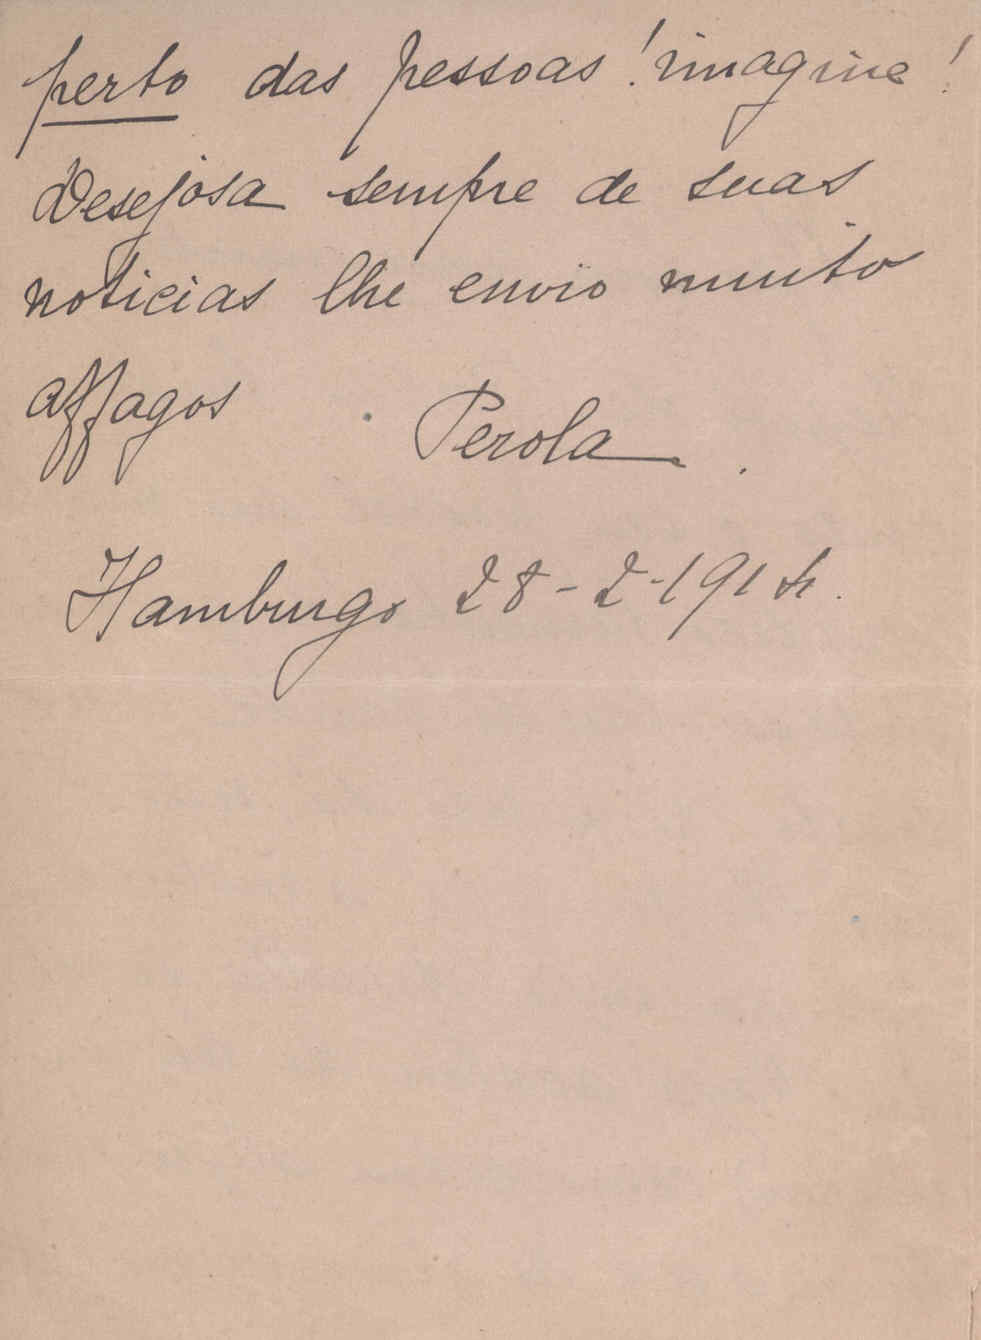 perto das pessoas! imagine!
Desejosa sempre de suas
noticias lhe envio muito
affagos Perola.
Hamburgo 28-2-1914.